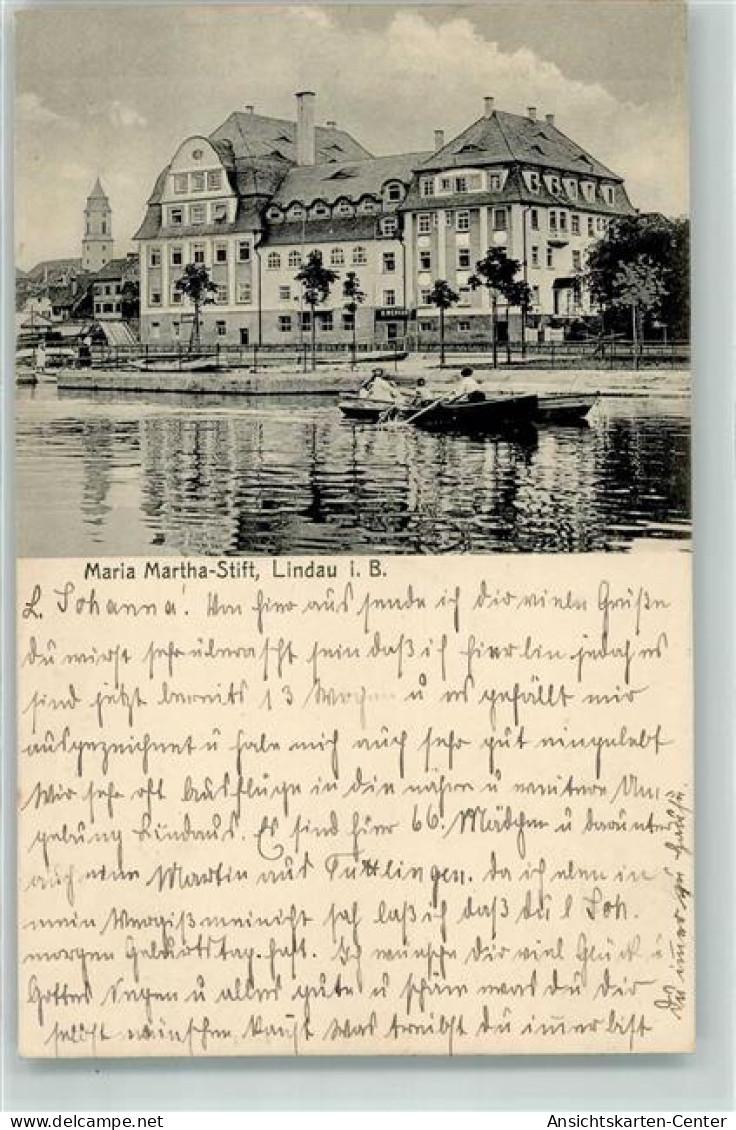 Maria Martha-Stift, Lindau i. B.
L. Johanna! Von hier aus sende ich dir vielen Grüße
du wirst sehr überrascht sein daß ich hier bin jedoch es
sind jetzt bereits 13 Wochen u es gefällt mir
ausgezeichnet u habe mich auch sehr gut eingelebt
Wir sehr oft Ausflüge in die nähere u weitere Um,
gebung Lindaus. Es sind hier 66. Mädchen u darunter
auch eine Martin aus Tuttlingen. da ich eben in
mein Vergißmeinicht sah laß ich daß du l Joh.
morgen Geburtstag hast. Ich wünsche dir viel Glück u
Gottes Segen u alles gute u schöne was du dir
selbst wünschen kanst Was treibst du immer bist
Du immer zu Hause.
Ansichtskarten-Center